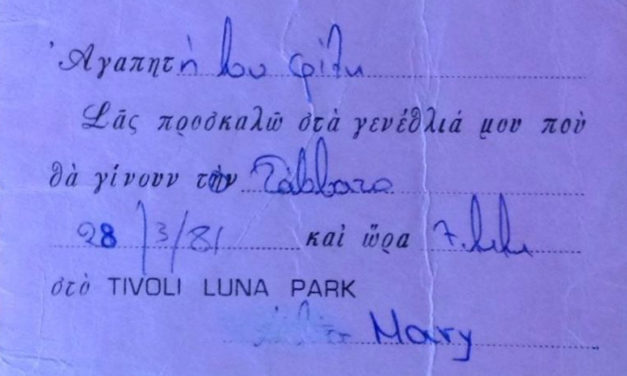 Ἀγαπητή μου φίλη
Σᾶς προσκαλῶ στὰ γενέθλιά μου ποὺ
θὰ γίνουν τὴν Σάββατο
28/3/81 καὶ ὥρα 7.μ.μ.
στὸ TIVOLI LUNA PARK
Mary